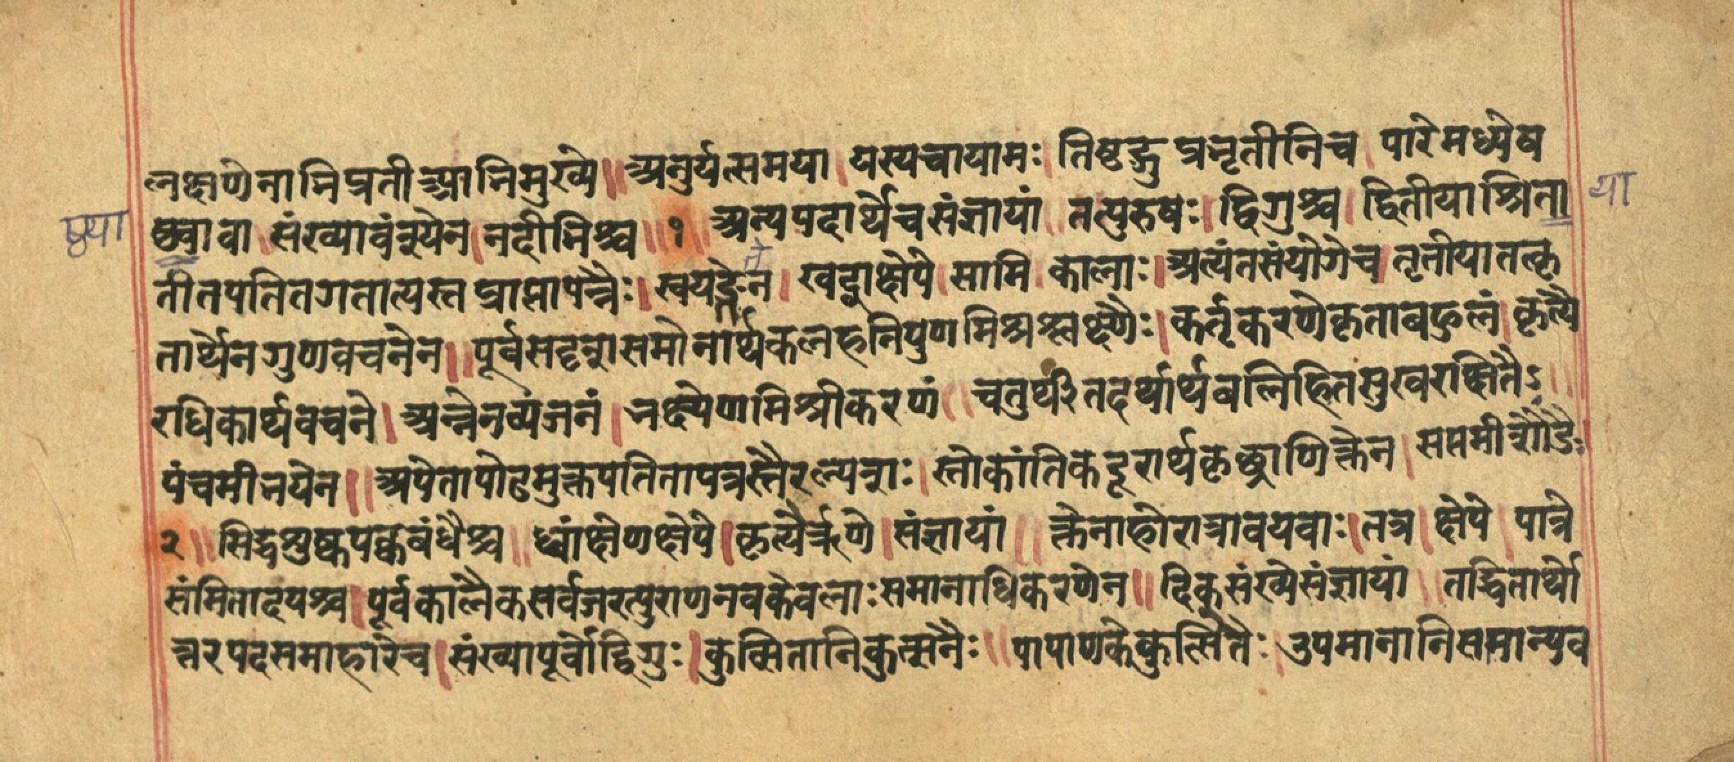 लक्षणेनाभिप्रती आभिमुख्ये॥ अनुर्यत्समया। यस्यचायामः। तिष्ठद्गुप्रभृतीनिच। पारेमध्येष
ष्ठ्या ष्ठ्यावा। संख्यावंश्येन। नदीभिश्च॥१॥ अन्यपदार्थेचसंज्ञायां॥ तत्पुरुषः। द्विगुश्च। द्वितीयाश्रिता या
तीतपतितगतात्यस्तप्राप्तापन्नैः। स्वयङ्क्तेन। खट्वाक्षेपे। सामि। कालाः। अत्यंतसंयोगेच। तृतीयातत्कृ
तार्थेनगुणवचनेन॥ पूर्वसदृशसमोनार्थकलहनिपुणमिश्रश्लक्ष्णैः। कर्तृकरणेकृताबहुलं। कृत्यै
रधिकार्थवचने। अन्नेनव्यंजनं। भक्ष्येणमिश्रीकरणं॥ चतुर्थीतदर्थार्थबलिहितसुखरक्षितैः॥
पंचमीभयेन॥ अपेतापोढमुक्तपतितापत्रस्तैरल्पशः। स्तोकांतिकदूरार्थकृछ्राणिक्तेन। सप्तमीशौंडैः
२॥ सिद्धशुष्कपक्वबंधैश्च॥ ध्वांक्षेणक्षेपे। कृत्यैर्ऋणे। संज्ञायां॥ क्तेनाहोरात्रावयवाः। तत्र। क्षेपे। पात्रे
संमितादयश्च। पूर्वकालैकसर्वजरत्पुराणनवकेवलाःसमानाधिकरणेन॥ दिक्संख्येसंज्ञायां॥ तद्धितार्थो
त्तरपदसमाहारेच। संख्यापूर्वोद्विगुः। कुत्सितानिकुत्सनैः॥ पापाणकेकुत्सितैः। उपमानानिसामान्यव